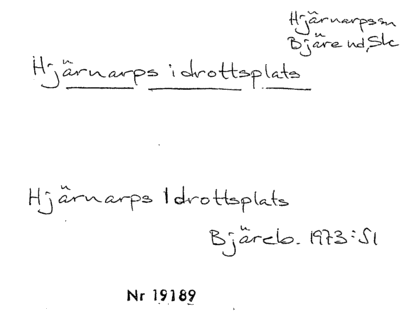 Hjärnarps sn
Bjäre hd, Sk
Hjärnarps idrottsplats
Hjärnarps Idrottsplats
Bjäreb. 1973:51
Nr 19189